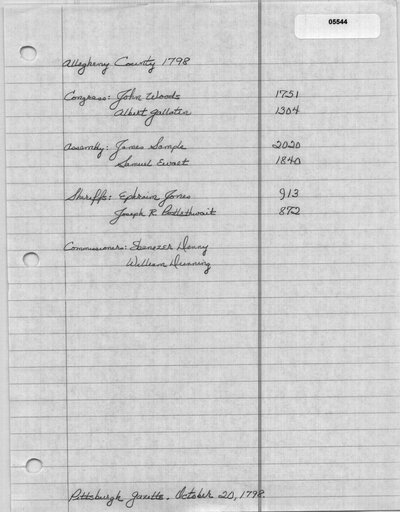 05544
Allegheny County 1798
Congress: John Woods 1751
Albert Gallatin 1304
Assembly: James Sample 2020
Samuel Ewart 1840
Sheriffs: Ephraim Jones 913
Joseph R. Postlethwait 872
Commissioners: Ebenezer Denny
William Dunning
Pittsburgh Gazette. October 20, 1798.